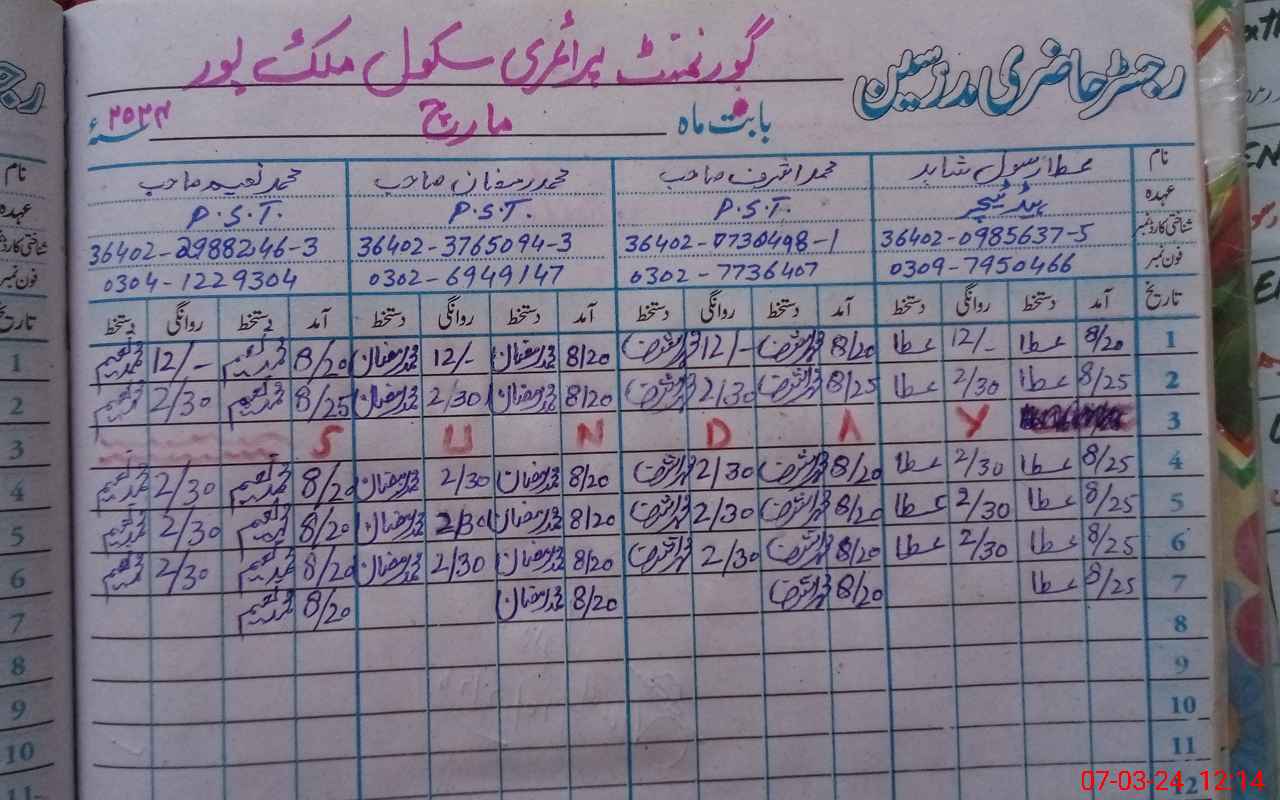 رجسٹر حاضری مدرسین گورنمنٹ پرائمری سکول ملک پور
بابت ماہ مارچ ۲۰۲۴ سنۂ
نام عطا رسول شاہد محمد اشرف صاحب محمد رمضان صاحب محمد نعیم صاحب
عہدہ ہیڈ ٹیچر P.S.T. P.S.T. P.S.T.
شناختی کارڈ نمبر 36402-0985637-5 36402-7730498-1 36402-3765094-3 36402-2988246-3
فون نمبر 0309-7950466 0302-7736407 0302-6949147 0304-1229304
تاریخ آمد دستخط روانگی دستخط آمد دستخط روانگی دستخط آمد دستخط روانگی دستخط آمد دستخط روانگی دستخط
1 8/20 عطا 12/- عطا 8/20 محمد اشرف 12/- محمد اشرف 8/20 محمد رمضان 12/- محمد رمضان 8/20 محمد نعیم 12/- محمد نعیم
2 8/25 عطا 2/30 عطا 8/25 محمد اشرف 2/30 محمد اشرف 8/20 محمد رمضان 2/30 محمد رمضان 8/25 محمد نعیم 2/30 محمد نعیم
3 S U N D A Y
4 8/25 عطا 2/30 عطا 8/20 محمد اشرف 2/30 محمد اشرف 8/20 محمد رمضان 2/30 محمد رمضان 8/20 محمد نعیم 2/30 محمد نعیم
5 8/25 عطا 2/30 عطا 8/20 محمد اشرف 2/30 محمد اشرف 8/20 محمد رمضان 2/30 محمد رمضان 8/20 محمد نعیم 2/30 محمد نعیم
6 8/25 عطا 2/30 عطا 8/20 محمد اشرف 2/30 محمد اشرف 8/20 محمد رمضان 2/30 محمد رمضان 8/20 محمد نعیم 2/30 محمد نعیم
7 8/25 عطا 8/20 محمد اشرف 8/20 محمد رمضان 8/20 محمد نعیم
8
9
10
11
12
نام
عہدہ
شناختی کارڈ نمبر
فون نمبر
تاریخ
1
2
3
4
5
6
7
8
9
10
07-03-24 12:14